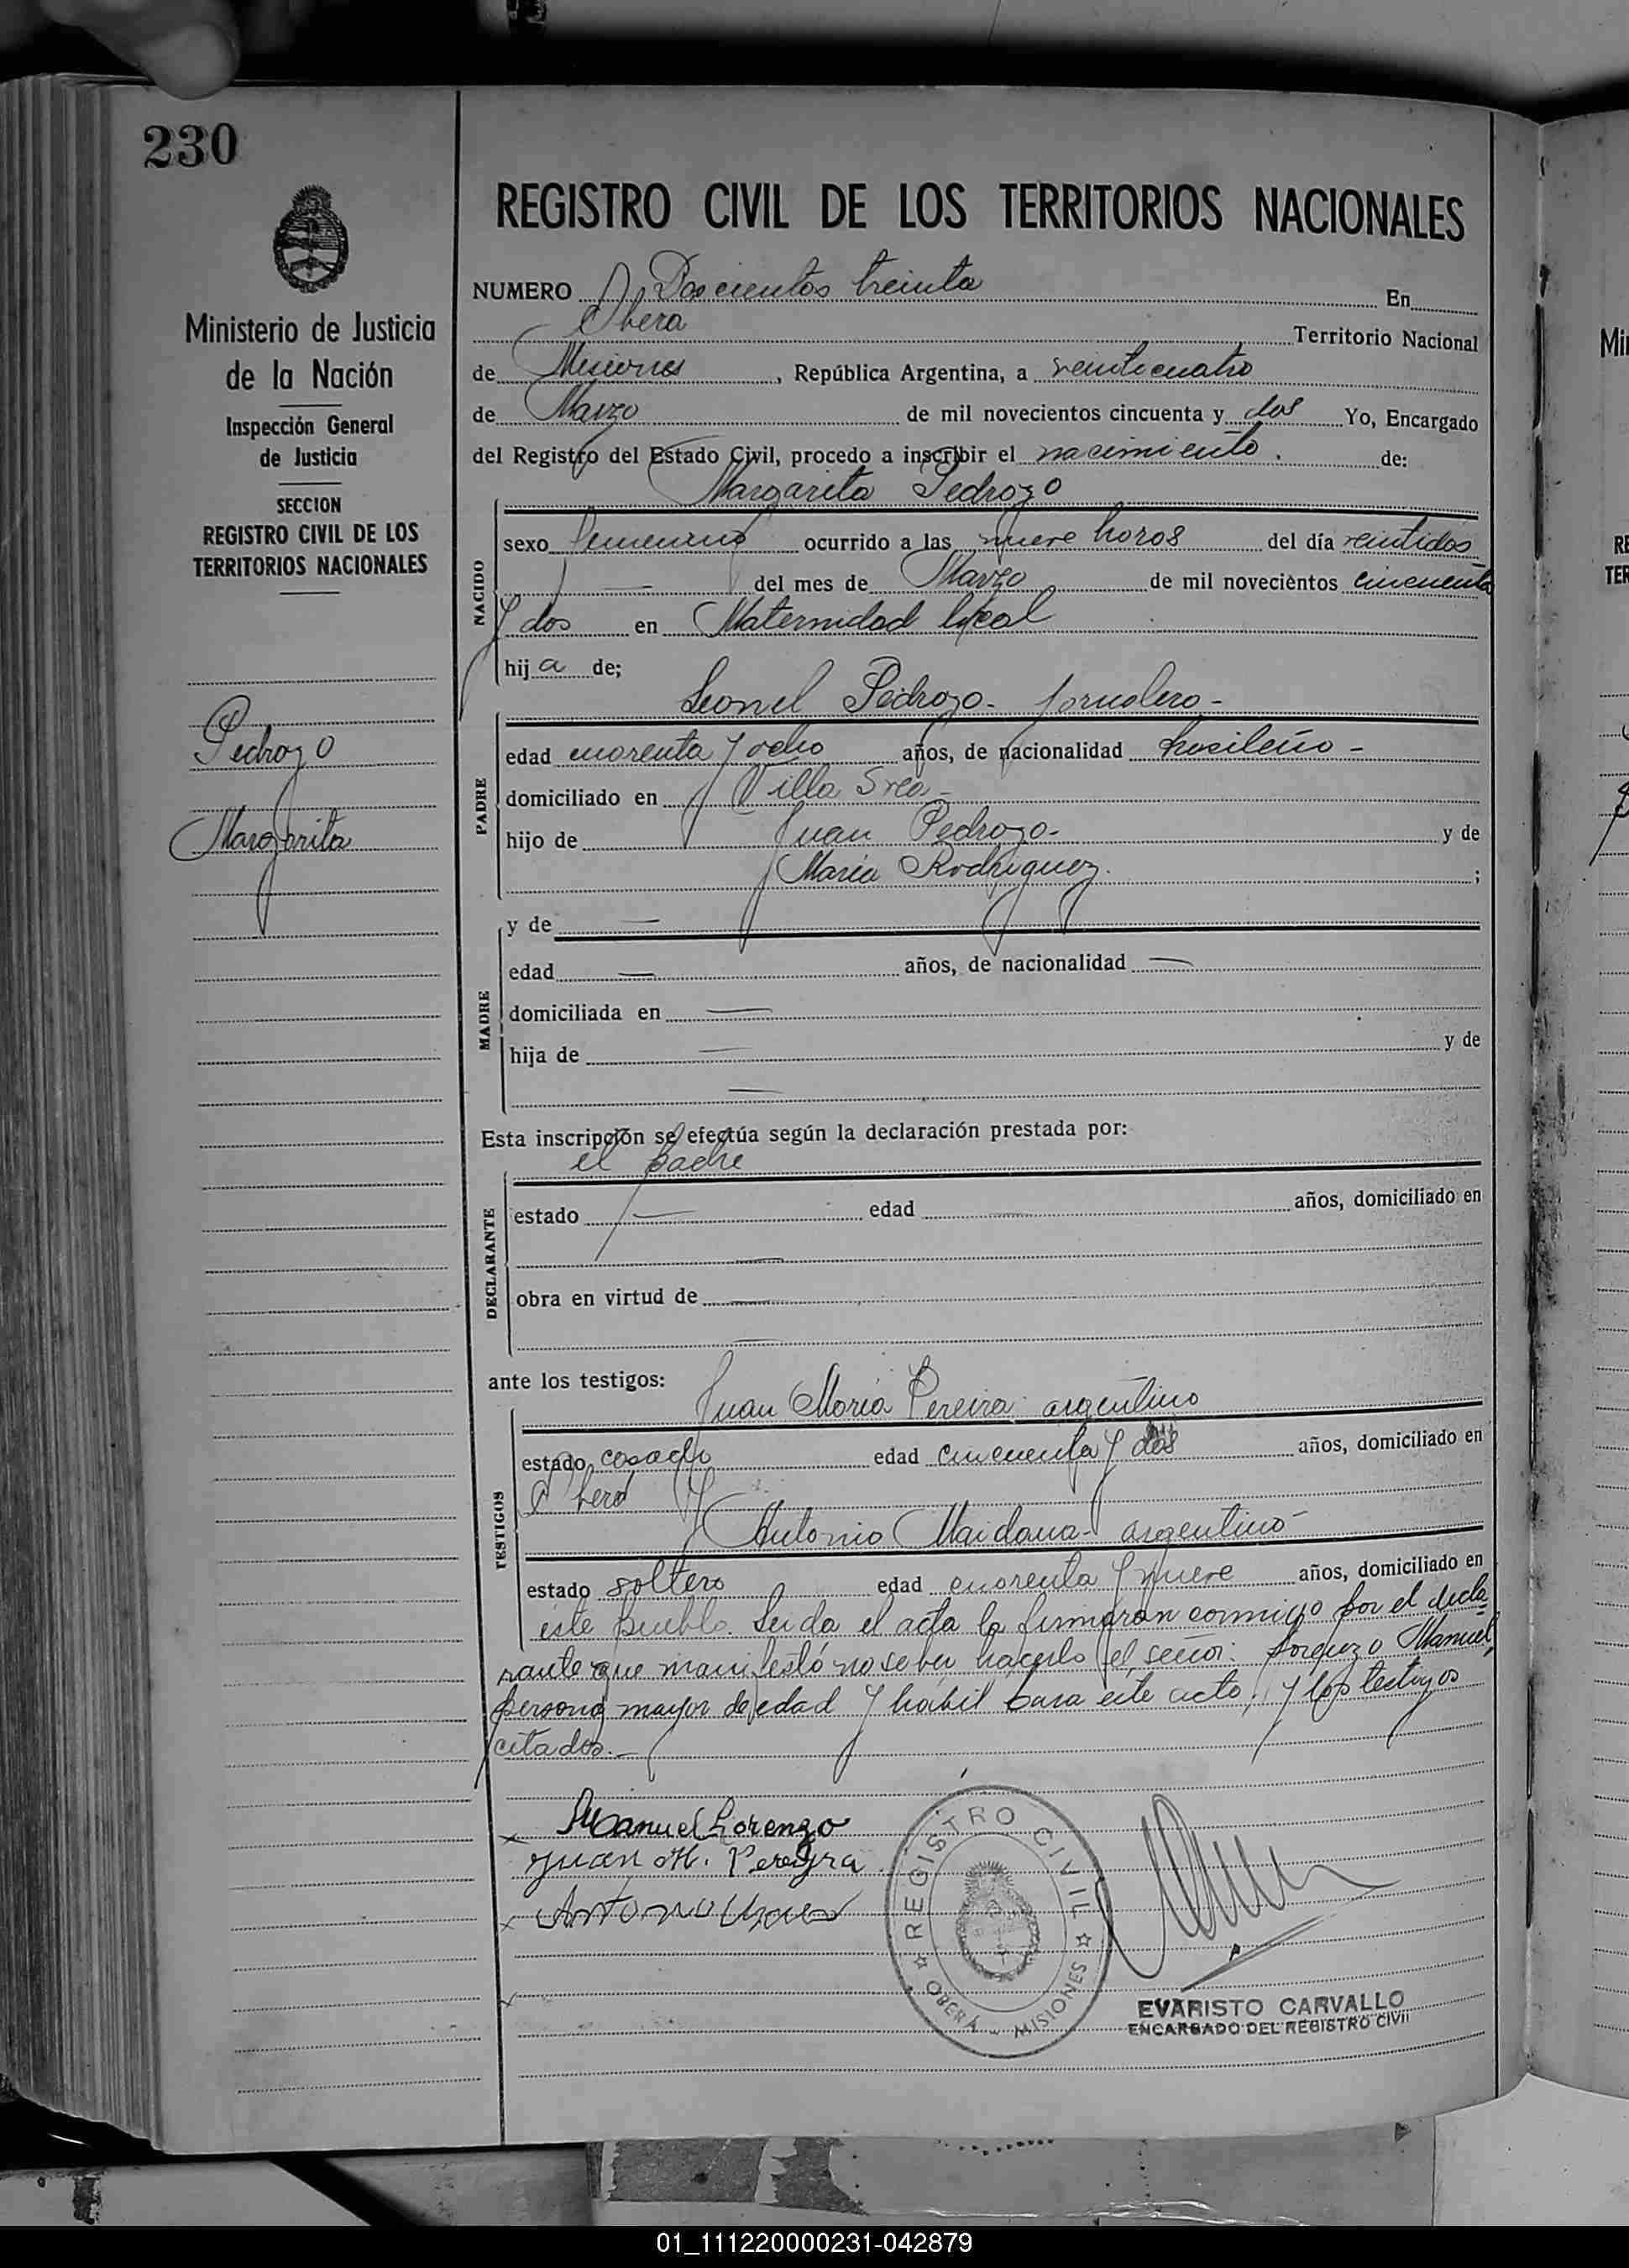 230
Ministerio de Justicia
de la Nación
Inspección General
de Justicia
SECCION
REGISTRO CIVIL DE LOS
TERRITORIOS NACIONALES
Pedrozo
Margarita
REGISTRO CIVIL DE LOS TERRITORIOS NACIONALES
NUMERO Doscientos treinta En
Obera Territorio Nacional
de Misiones, República Argentina, a veinticuatro
de Marzo de mil novecientos cincuenta y dos Yo, Encargado
del Registro del Estado Civil, procedo a inscribir el nacimiento. de:
Margarita Pedrozo
NACIDO
sexo femenino ocurrido a las nueve horas del día veintidos
— del mes de Marzo de mil novecientos cincuenta
y dos en Maternidad local
hija de;
Leonel Pedrozo - jornalero -
PADRE
edad cuarenta y ocho años, de nacionalidad brasileño -
domiciliado en Villa
hijo de Juan Pedrozo - y de
María Rodriguez. ;
MADRE
y de —
edad — años, de nacionalidad —
domiciliada en —
hija de — y de
—
Esta inscripción se efectúa según la declaración prestada por:
el padre
DECLARANTE
estado — edad — años, domiciliado en
—
obra en virtud de —
—
ante los testigos:
Juan María Pereira argentino
TESTIGOS
estado casado edad cincuenta y dos años, domiciliado en
Oberá y
Antonio Maidana - argentino -
estado soltero edad cuarenta y nueve años, domiciliado en
este pueblo. Leida el acta la firmaron conmigo por el decla-
rante que manifestó no saber hacerlo el señor: Lorenzo Manuel,
persona mayor de edad y hábil para este acto, y los testigos
citados.-
x Manuel Lorenzo
Juan M. Pereyra
x Antonio
x
REGISTRO CIVIL
OBERÁ - MISIONES
EVARISTO CARVALLO
ENCARGADO DEL REGISTRO CIVIL
01_111220000231-042879